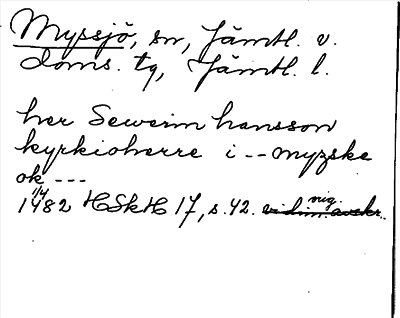 Myssjö, sn, Jämtl. v.
doms. tg, Jämtl. l.
her Sewerin hansson
kyrkioherre i -- myzske
ok ---
1/4
1482 HSkH 17, s. 42. vidim. avskr.